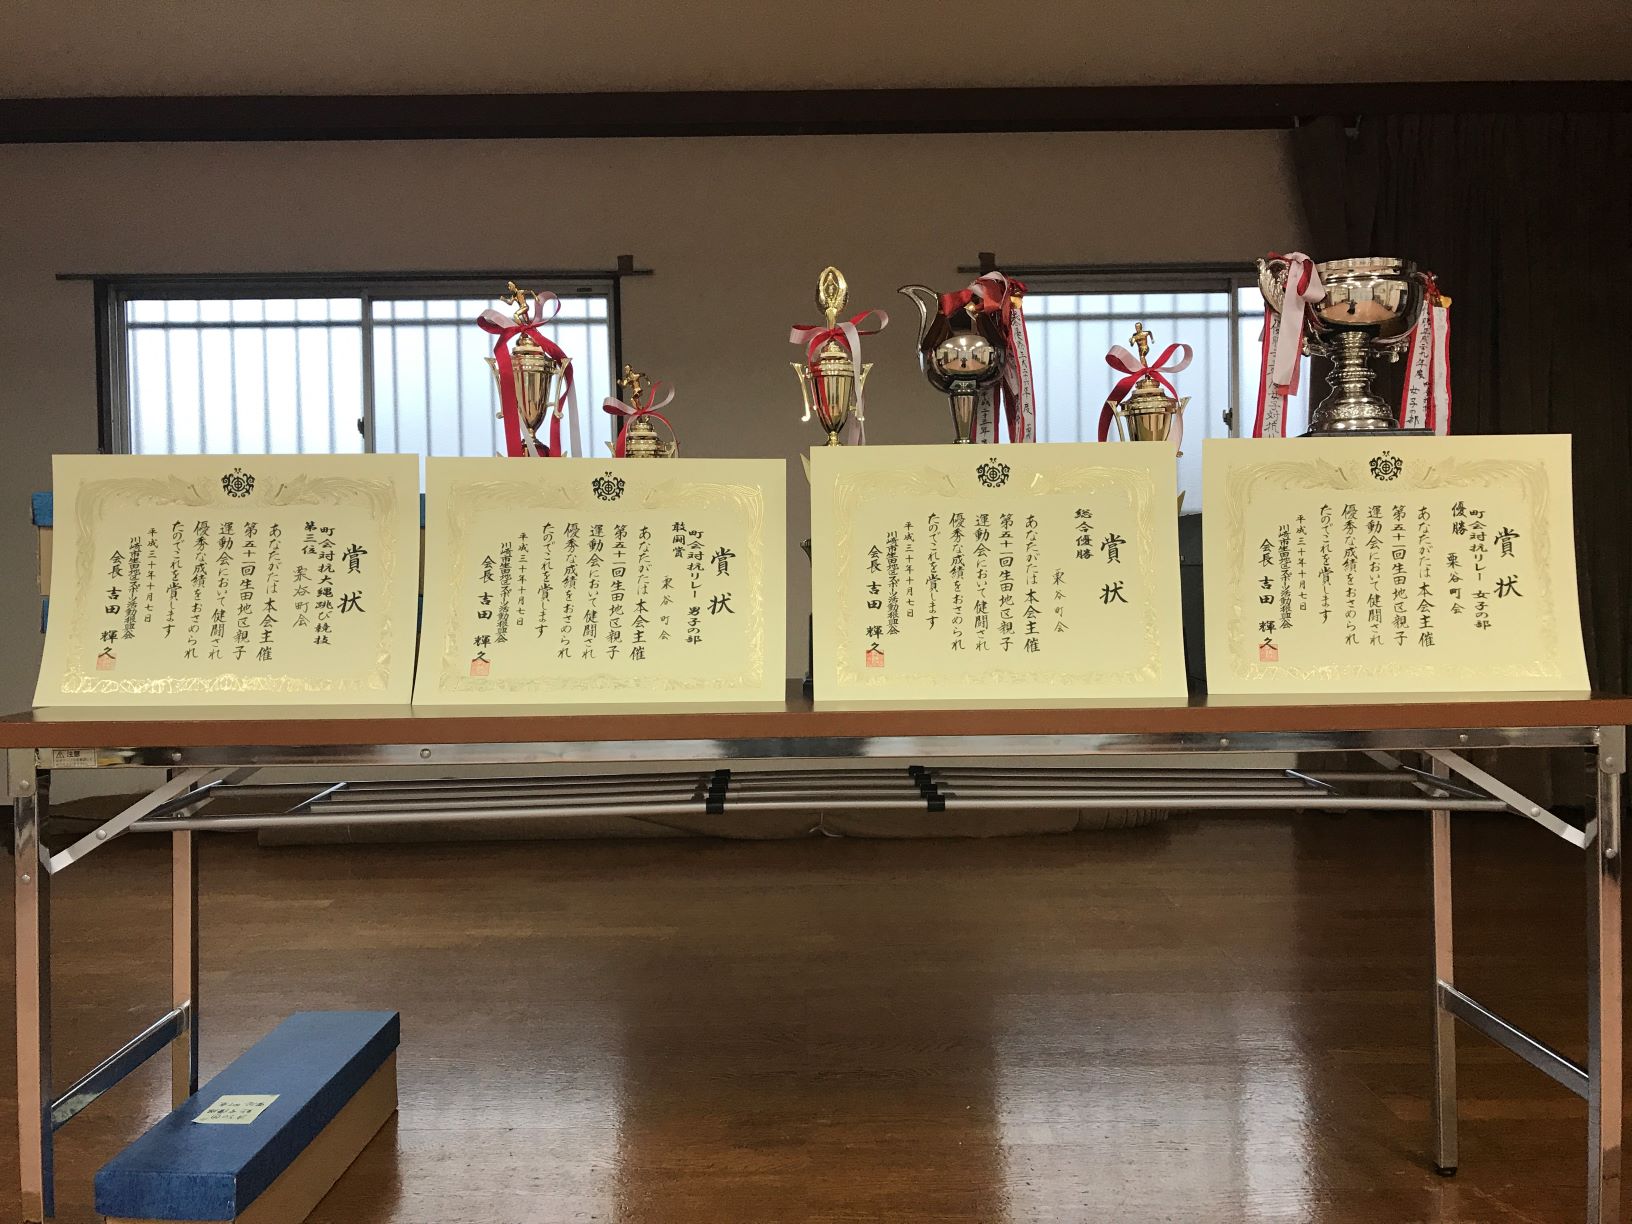 賞状
町会対抗大縄跳び競技
第三位 栗谷町会
あなたがたは本会主催
第五十一回生田地区親子
運動会において健闘され
優秀な成績をおさめられ
たのでこれを賞します
平成三十年十月七日
会長 吉田 輝久
賞状
町会対抗リレー 男子の部
敢闘賞 栗谷町会
あなたがたは本会主催
第五十一回生田地区親子
運動会において健闘され
優秀な成績をおさめられ
たのでこれを賞します
平成三十年十月七日
会長 吉田 輝久
賞状
総合優勝
栗谷町会
あなたがたは本会主催
第五十一回生田地区親子
運動会において健闘され
優秀な成績をおさめられ
たのでこれを賞します
平成三十年十月七日
会長 吉田 輝久
賞状
町会対抗リレー 女子の部
優勝 栗谷町会
あなたがたは本会主催
第五十一回生田地区親子
運動会において健闘され
優秀な成績をおさめられ
たのでこれを賞します
平成三十年十月七日
会長 吉田 輝久
女子の部
注意